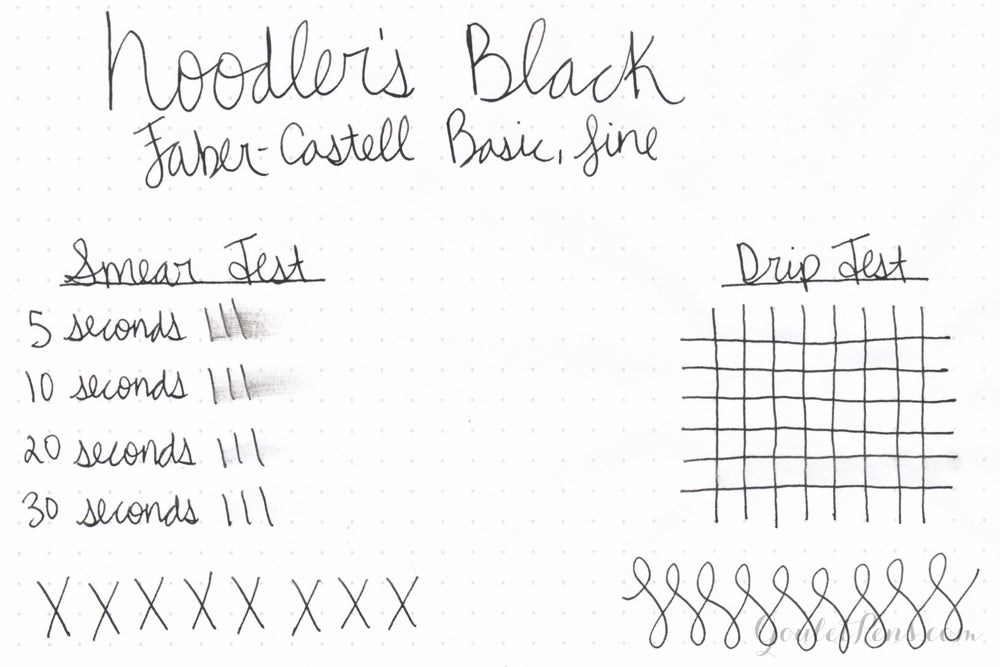 Noodler's Black
Faber-Castell Basic, fine
Smear Test
5 seconds
10 seconds
20 seconds
30 seconds
Drip Test
X X X X X X X X
GouletPens.com